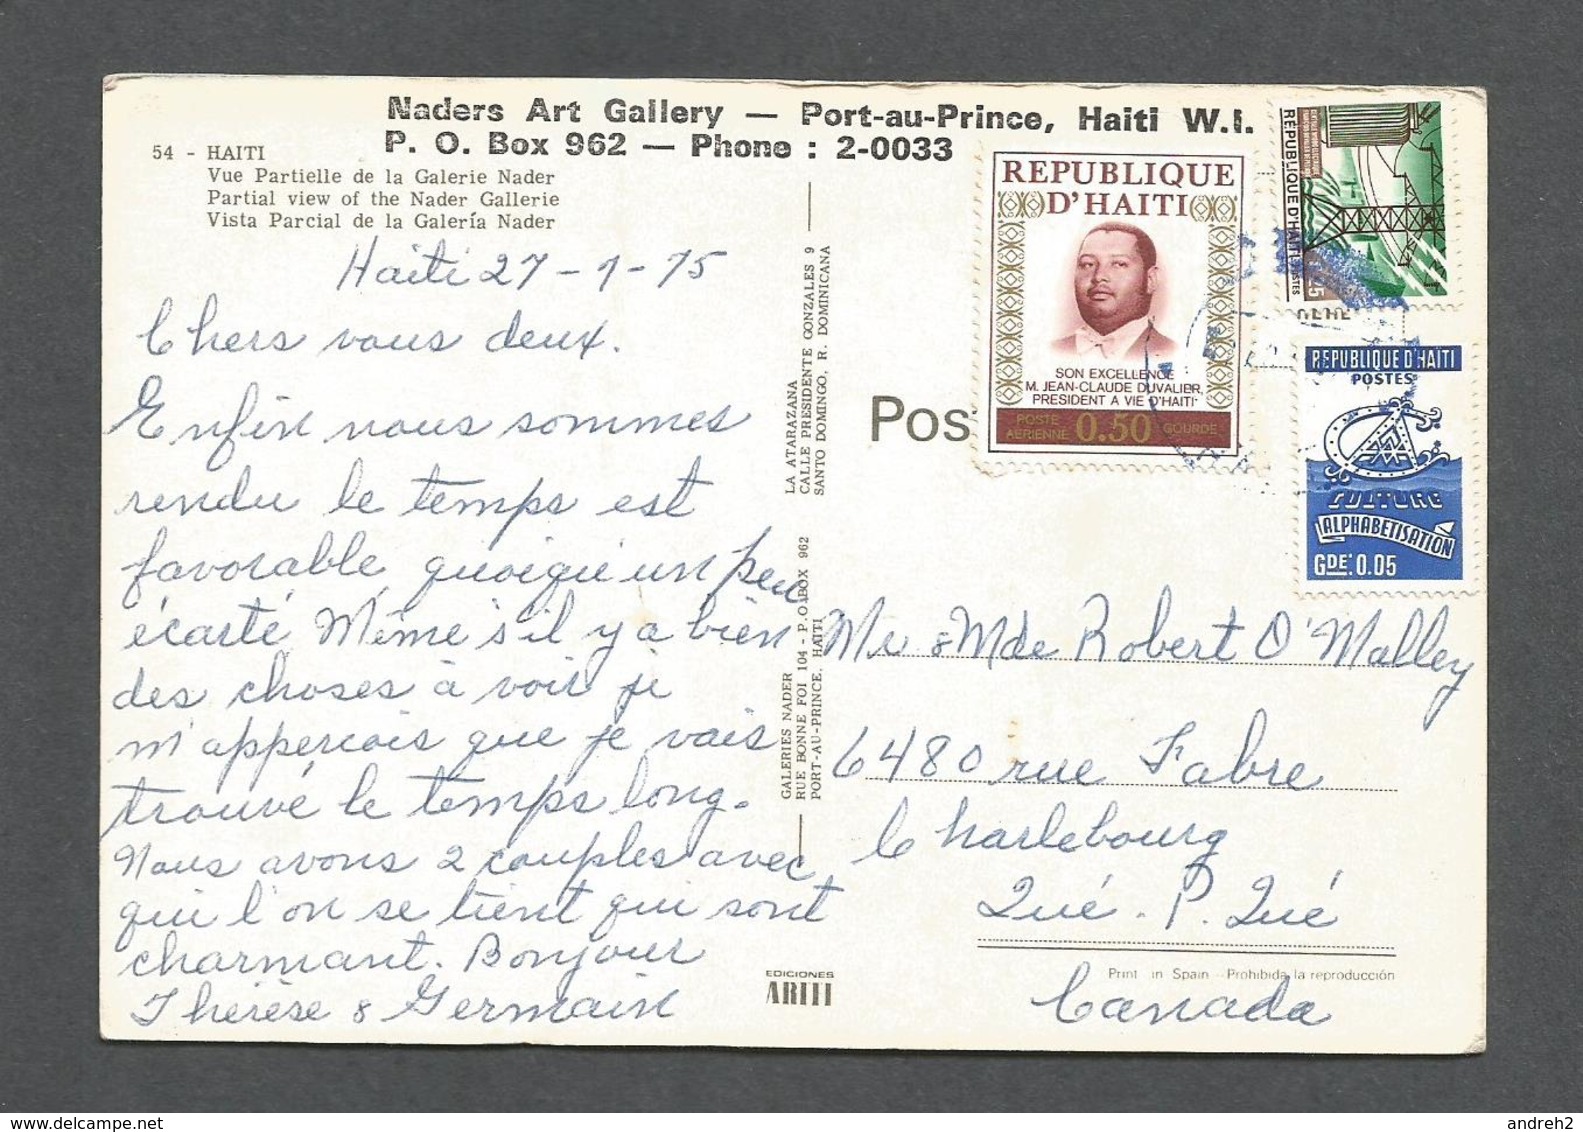 Naders Art Gallery — Port-au-Prince, Haiti W.I.
P. O. Box 962 — Phone : 2-0033
54 - HAITI
Vue Partielle de la Galerie Nader
Partial view of the Nader Gallerie
Vista Parcial de la Galería Nader
Haiti 27-1-75
Chers vous deux.
Enfin nous sommes
rendu le temps est
favorable quoique un peu
écarté Même s'il y a bien
des choses à voir je
m'apperçois que je vais
trouvé le temps long.
Nous avons 2 couples avec
qui l'on se tient qui sont
charmant. Bonjour
Thérèse & Germain
LA ATARAZANA
CALLE PRESIDENTE GONZALES 9
SANTO DOMINGO, R. DOMINICANA
GALERIES NADER
RUE BONNE FOI 104 - P.O. BOX 962
PORT-AU-PRINCE, HAITI
EDICIONES
ARITI
Pos
REPUBLIQUE
D'HAITI
SON EXCELLENCE
M. JEAN-CLAUDE DUVALIER,
PRESIDENT A VIE D'HAITI
POSTE
AERIENNE 0.50 GOURDE
REPUBLIQUE D'HAITI
POSTES
REPUBLIQUE D'HAÏTI
POSTES
CULTURE
ALPHABETISATION
GDE: 0.05
Mr & Mde Robert O'Malley
6480 rue Fabre
Charlebourg
Qué. P. Qué
Canada
Print in Spain - Prohibida la reproducción
andreh2